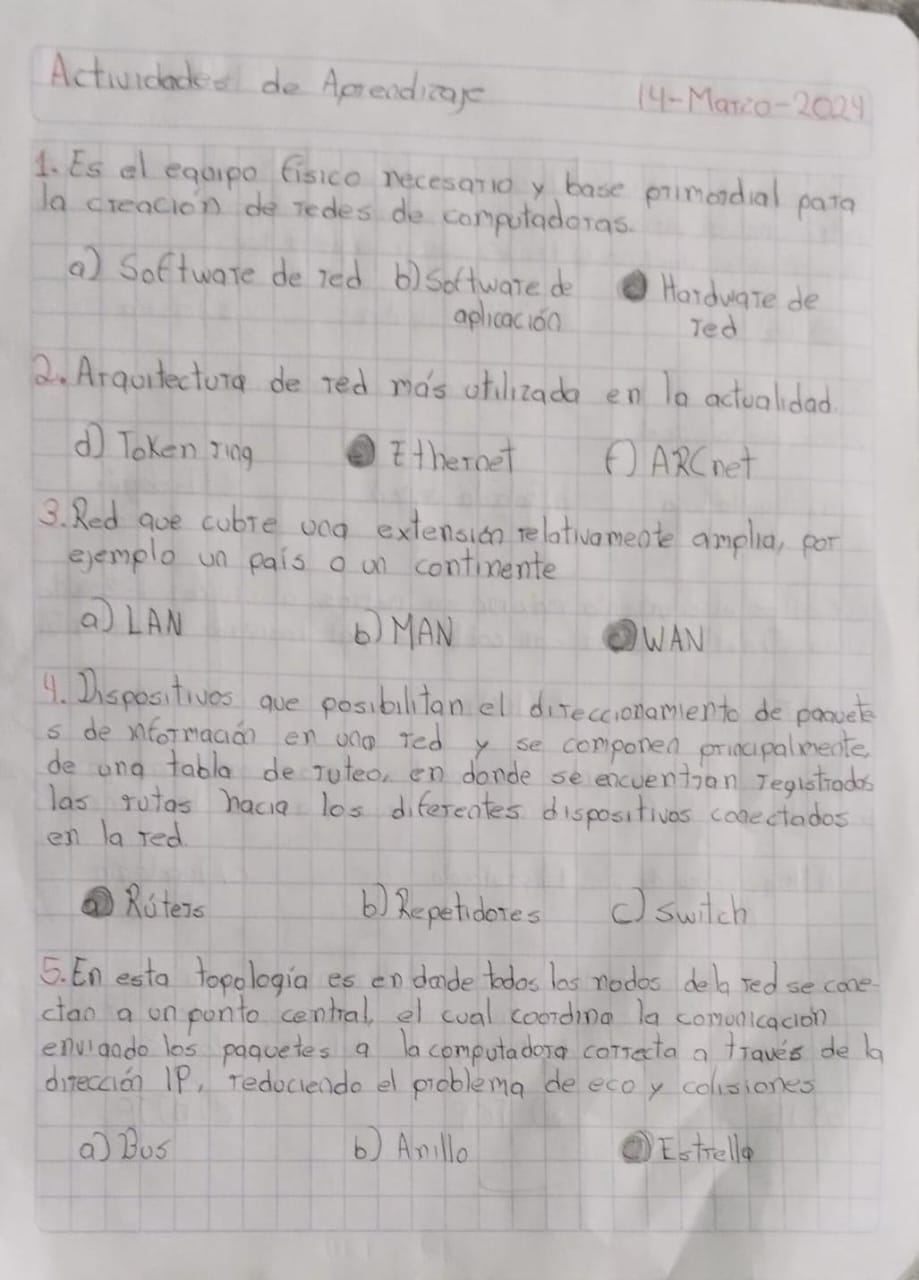 Actividades de Aprendizaje 14-Marzo-2024
1. Es el equipo físico necesario y base primordial para
la creación de redes de computadoras.
a) Software de red b) Software de Hardware de
aplicación red
2. Arquitectura de red más utilizada en la actualidad.
d) Token ring e) Ethernet f) ARCnet
3. Red que cubre una extensión relativamente amplia, por
ejemplo un país o un continente
a) LAN b) MAN c) WAN
4. Dispositivos que posibilitan el direccionamiento de paquete
s de información en una red y se componen principalmente
de una tabla de ruteo, en donde se encuentran registrados
las rutas hacia los diferentes dispositivos conectados
en la red.
a) Rúters b) Repetidores c) switch
5. En esta topología es en donde todos los nodos de la red se cone-
ctan a un punto central, el cual coordina la comunicación
enviando los paquetes a la computadora correcta a través de la
dirección IP, reduciendo el problema de eco y colisiones
a) Bus b) Anillo c) Estrella